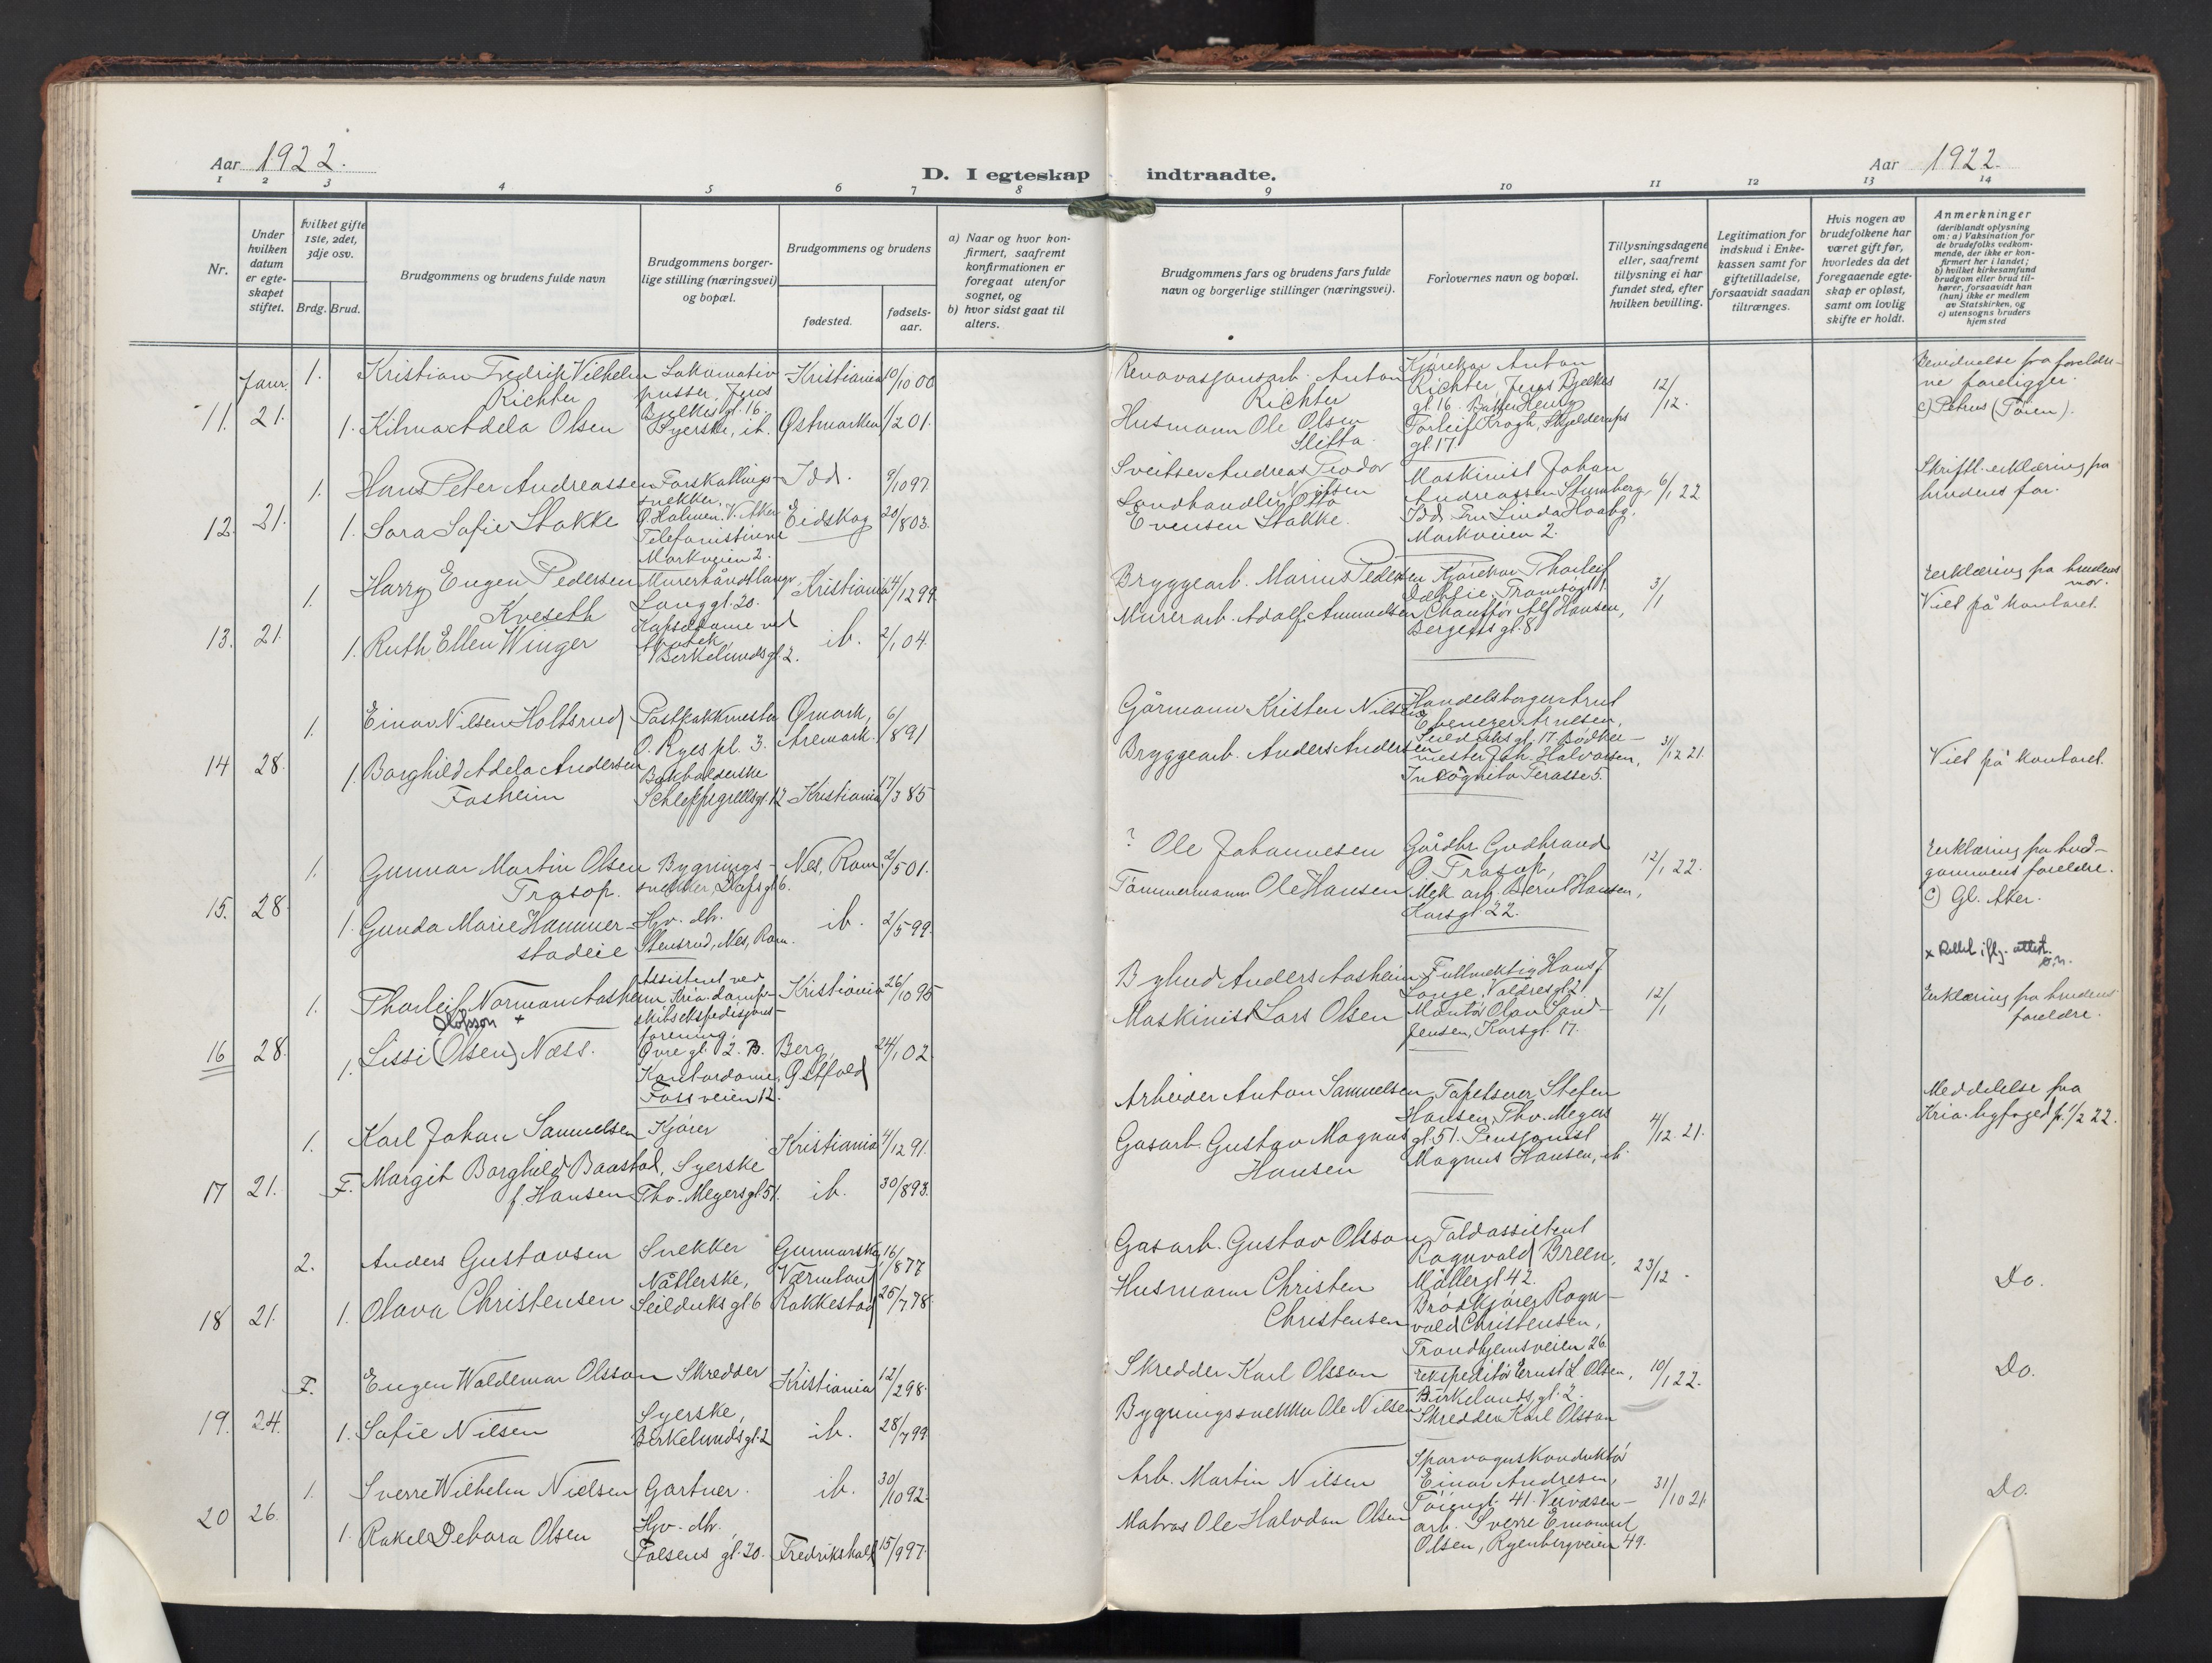 Aar 1922.
D. I egteskap indtraadte.
Aar 1922.
1 2 3 4 5 6 7 8 9 10 11 12 13 14
Nr.
Under hvilken datum er egteskapet stiftet.
Hvilket gifte 1ste, 2det, 3dje osv.
Brdg. Brud.
Brudgommens og brudens fulde navn
Brudgommens borgerlige stilling (næringsvei) og bopæl.
Brudgommens og brudens
fødested.
fødselsaar.
a) Naar og hvor konfirmert, saafremt konfirmationen er foregaat utenfor sognet, og
b) hvor sidst gaat til alters.
Brudgommens fars og brudens fars fulde navn og borgerlige stillinger (næringsvei).
Forlovernes navn og bopæl.
Tillysningsdagene eller, saafremt tillysning ei har fundet sted, efter hvilken bevilling.
Legitimation for indskud i Enkekassen samt for giftetilladelse, forsaavidt saadan tiltrænges.
Hvis nogen av brudefolkene har været gift før, hvorledes da det foregaaende egteskap er opløst, samt om lovlig skifte er holdt.
Anmerkninger (deriblandt oplysning om: a) Vaksination for de brudefolks vedkommende, der ikke er konfirmert her i landet; b) hvilket kirkesamfund brudgom eller brud tilhører, forsaavidt han (hun) ikke er medlem av Statskirken, og c) utensogns bruders hjemsted
Janr.
11. 21.
1. Kristian Fredrik Vilhelm Richter
Lokomativpusser, Jens Bjelkes gt. 16.
Kristiania 10/10 00
Renovasjonsarb. Anton Richter
Kjørekar Anton Richter, Jens Bjelkes gt. 16.
12/12.
foreligger.
1. Adela Olsen
Syerske, ib.
Østmarken 1/2 01.
Husmann Ole Olsen Slitta
Torleif Krogh, Skjelderups gt. 17
c) Petrus (Tøien).
12. 21.
1. Hans Peter Andreassen
Forskallingssnekker, V. Aker
Idd. 9/10 97
Sveitser Andreas Teodor Nilsen
Maskinist Johan Andreassen
Idd
6/1 22
Skriftl. erklæring fra brudens far.
1. Sara Sofie Stakke
Telefonistinne Markveien 2.
Eidskog 20/8 03.
Landhandler Otto Evensen Stakke.
Fru Linda
Markveien 2.
13. 21
1. Harry Eugen Pedersen Kveseth
Murerhåndtlanger, Langgt. 20.
Kristiania 4/12 99
Bryggearb. Marius Pedersen
Kjørekar Thorleif
3/1
Erklæring fra brudens mor.
Viet på kontoret.
1. Ruth Ellen Winger
Birkelundsgt 2.
ib. 2/1 04.
Murerarb. Adolf Amundsen
Chauffør Alf Hansen,
gt. 8
14 28.
1. Einar Nilsen Holtsrud
Postpakkmester
O. Ryes pl. 3.
Ømark, Aremark. 6/8 91
Gårmann Kristen Nilsen
Handelsborger Arnt Ebenezer Arntsen,
Seilduksgt. 17.
3/12 21.
Viet på kontoret.
1. Borghild Adela Andersen Fosheim
Bokholderske
Schleppegrellsgt. 12
Kristiania 17/3 85
Bryggearb. Anders Andersen
Bødkermester Joh. Halvorsen,
Incognito Terasse 5.
15. 28.
1. Gunnar Martin Olsen Trasop.
Bygningssnekker, Olafsgt 6.
Nes, Rom. 2/5 01.
? Ole Johannesen
Gårdbr. Gudbrand O. Trasop,
12/1 22.
Erklæring fra brudgommens foreldre.
1. Gunda Marie Hammerstadeie
Hv. db.
Stensrud, Nes, Rom.
ib. 2/5 99.
Tømmermann Ole Hansen
Mek. arb. Bernt Hansen,
Karsgt. 22.
c) Gl. Aker.
x Rettet iflg. attest.
16 28.
1. Thorleif Norman Aasheim
Assistent ved Kria. dampskibsekspedisjonsforening,
Øvregt. 12. B.
Kristiania 26/10 95
Bybud Anders Aasheim
Fullmektig Hans J. Lange, Valdresgt 2
12/1
Erklæring fra brudens foreldre.
Olofsson +
1. Lissi (Olsen) Næss.
Kontordame, Fossveien 12.
Berg, Østfold 24/1 02.
Maskinist Lars Olsen
Montør Olav Sand-Jensen, Karsgt. 17.
17 21.
1. Karl Johan Samuelsen
Kjører
Kristiania 4/12 91.
Arbeider Anton Samuelsen
Tapetserer Stefen Hansen, Thv. Meyers gt 51.
4/12 21.
Meddelelse fra Kria. byfoged fr. 1/2 22.
F. Margit Borghild Baastad, f. Hansen
Syerske
Thv. Meyersgt 51.
ib. 30/8 93.
Gasarb. Gustav Magnus Hansen
Pensjonist Magnus Hansen, ib.
18 21.
2. Anders Gustavsen
Snekker
Gunnarskog, Værmland 16/8 77
Gasarb. Gustav Olsson
Toldassistent Ragnvald Breen,
Møllergt 42.
23/12.
Do.
1. Olava Christensen
Nåtlerske, Seilduksgt 6
Rakkestad 25/7 78.
Husmann Christen Christensen
Brødkjører Ragnvald Christensen,
Trondhjemsveien 26
19. 24.
F. Eugen Waldemar Olsson
Skredder
Kristiania 12/2 98.
Skredder Karl Olsson
Ekspeditør Ernst L. Olsen,
Birkelunds gt. 2.
10/1 22.
Do.
1. Sofie Nilsen
Syerske, Birkelundsgt. 2
ib. 28/7 99
Bygningssnekker Ole Nilsen
Skredder Karl Olsson
20 26.
1. Sverre Wilhelm Nielsen
Gartner.
ib. 30/10 92.
Arb. Martin Nilsen
Sporvognskonduktør Einar Andresen,
Tøiengt. 41.
31/10 21
Do.
1. Rakel Debora Olsen
Hv. db.
Falsens gt. 20.
Fredrikshald 15/9 97.
Matros Ole Halvdan Olsen
Veivæsenarb. Sverre Emanuel Olsen, Ryenbergveien 49.